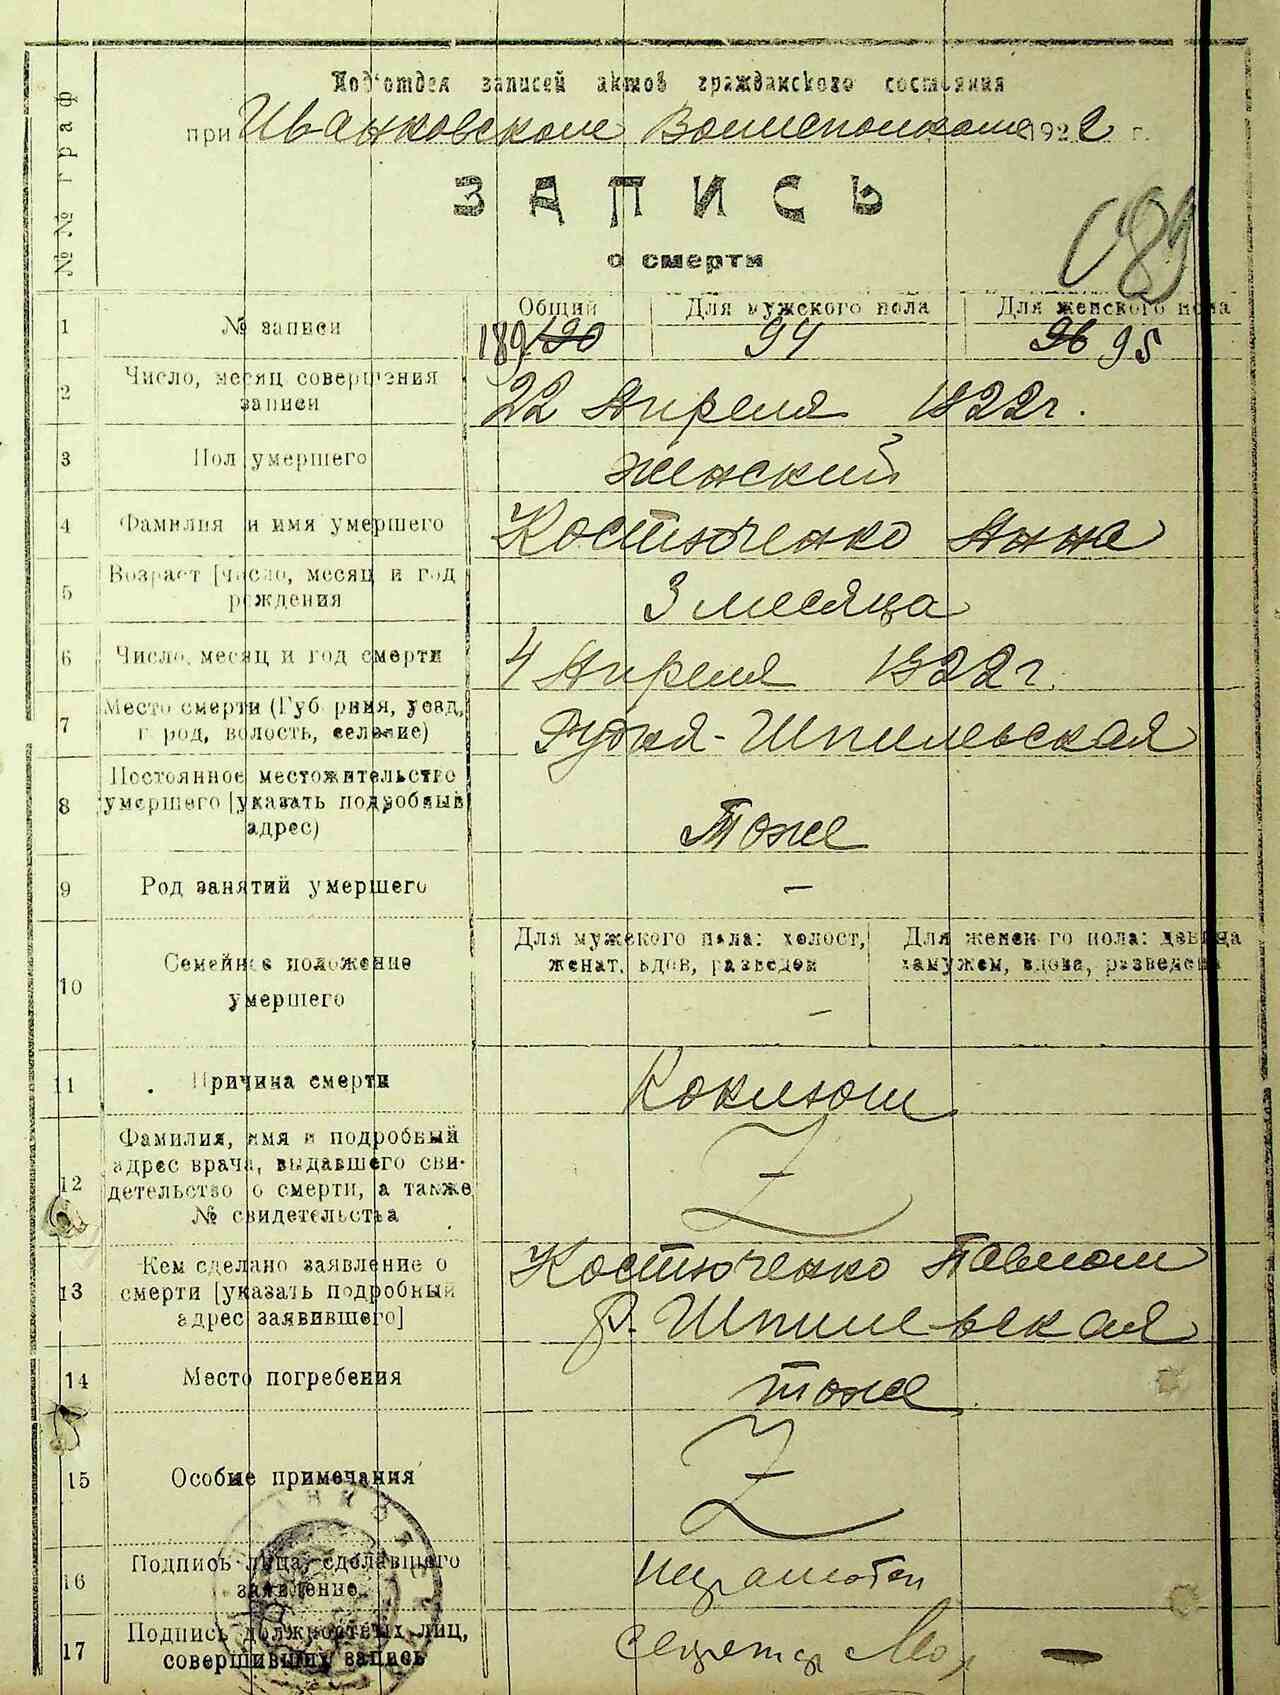 №№ граф
Под'отдел записей актов гражданского состояния
при Иванковском Волисполкоме 1922 г.
ЗАПИСЬ
о смерти
089
1 № записи
Общий Для мужского пола Для женского пола
189 190 94 96 95
2 Число, месяц совершения
записи
22 Апреля 1922г.
3 Пол умершего женский
4 Фамилия и имя умершего Костюченко Анна
5 Возраст [число, месяц и год
рождения
3 месяца
6 Число, месяц и год смерти 4 Апреля 1922г.
7 Место смерти (Губерния, уезд,
город, волость, селение)
Рудня-Шпилевская
8 Постоянное местожительство
умершего [указать подробный
адрес)
Тоже
9 Род занятий умершего –
10 Семейное положение
умершего
Для мужского пола: холост,
женат, вдов, разведен
–
Для женского пола: девица
замужем, вдова, разведена
11 Причина смерти Коклюш
12 Фамилия, имя и подробный
адрес врача, выдавшего сви-
детельство о смерти, а также
№ свидетельства
Z
13 Кем сделано заявление о
смерти [указать подробный
адрес заявившего]
Костюченко Павлом
Р. Шпилевская
14 Место погребения тоже
15 Особые примечания Z
16 Подпись лица, сделавшего
заявление
неграмотен
17 Подпись должностных лиц,
совершивших запись